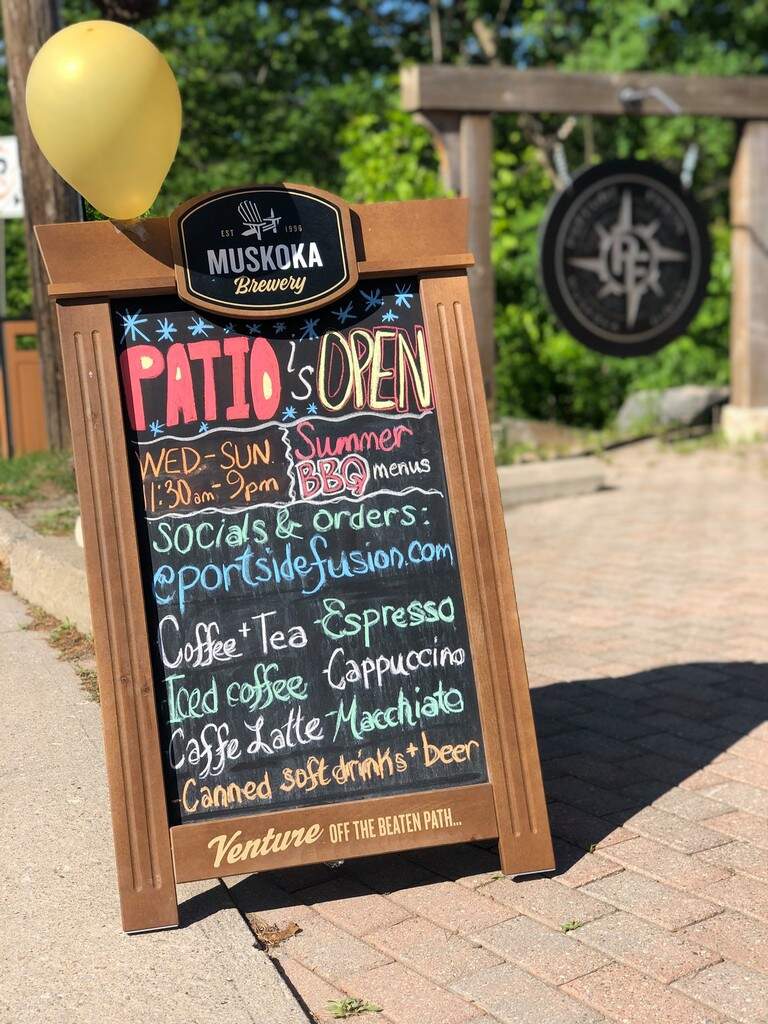 EST 1996
MUSKOKA
Brewery
PATIO is OPEN
WED-SUN.
11:30am-9pm
Summer
BBQ menus
Socials & orders:
@portsidefusion.com
Coffee + Tea
-Espresso
Iced coffee
Cappuccino
Caffe Latte
-Macchiato
-Canned soft drinks + beer
Venture OFF THE BEATEN PATH...
PF